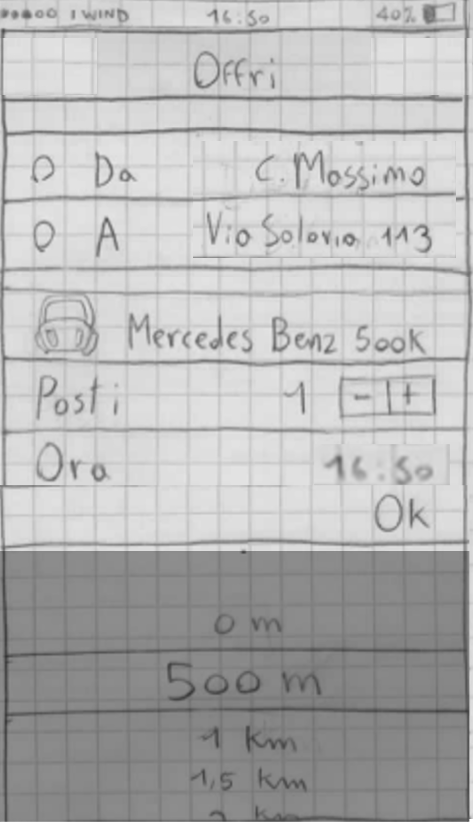 I WIND 16:50 40%
Offri
Da C. Massimo
A Via Salaria, 113
Mercedes Benz 500K
Posti 1 - +
Ora 16:50
Ok
0 m
500 m
1 km
1,5 km
2 km